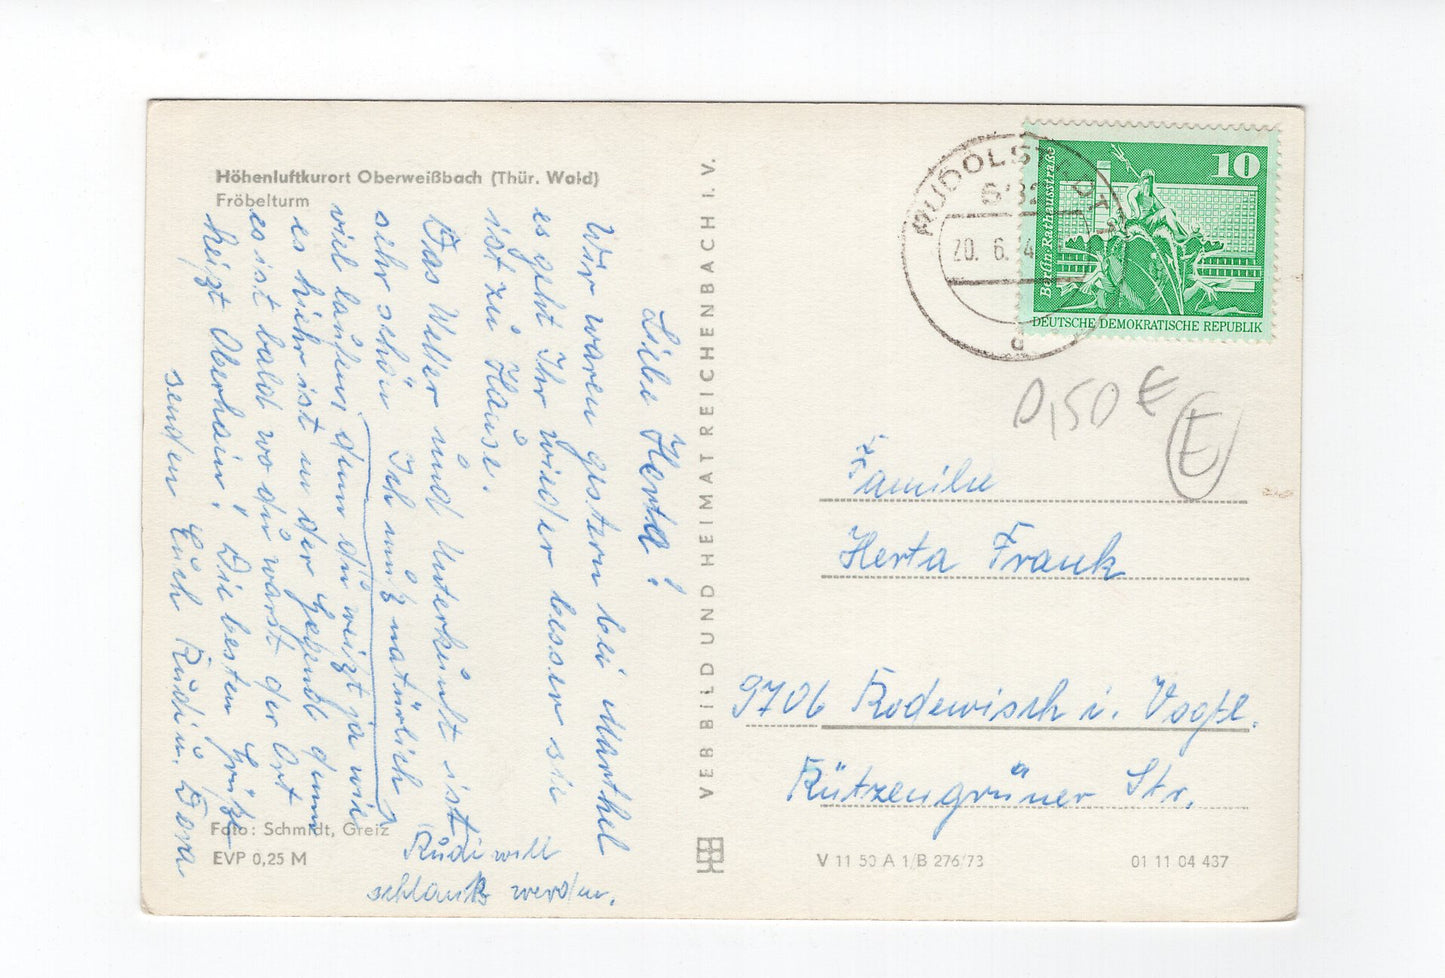 Höhenluftkurort Oberweißbach (Thür. Wald)
Fröbelturm
Liebe Herta!
Wir waren gestern bei Marthel
es geht Ihr wieder besser sie
ist zu Hause.
Das Wetter und Unterkunft ist
sehr schön Ich muß natürlich
viel laufen, denn du weißt ja wie
es hier ist in der Gegend denn
es ist bald wo du warst der Ort
heißt Oberhain! Die besten Grüße
senden Euch Rudi u. Dora
Rudi will
schlank werden.
Foto: Schmidt, Greiz
EVP 0,25 M
VEB BILD UND HEIMAT REICHENBACH I. V.
RUDOLSTADT 1
682
20. 6. 74
d
10
Berlin-Rathausstraße
DEUTSCHE DEMOKRATISCHE REPUBLIK
0,50 €
E
Familie
Herta Frank
9706 Rodewisch i. Vogtl.
Rützengrüner Str.
V 11 50 A 1/B 276/73
01 11 04 437